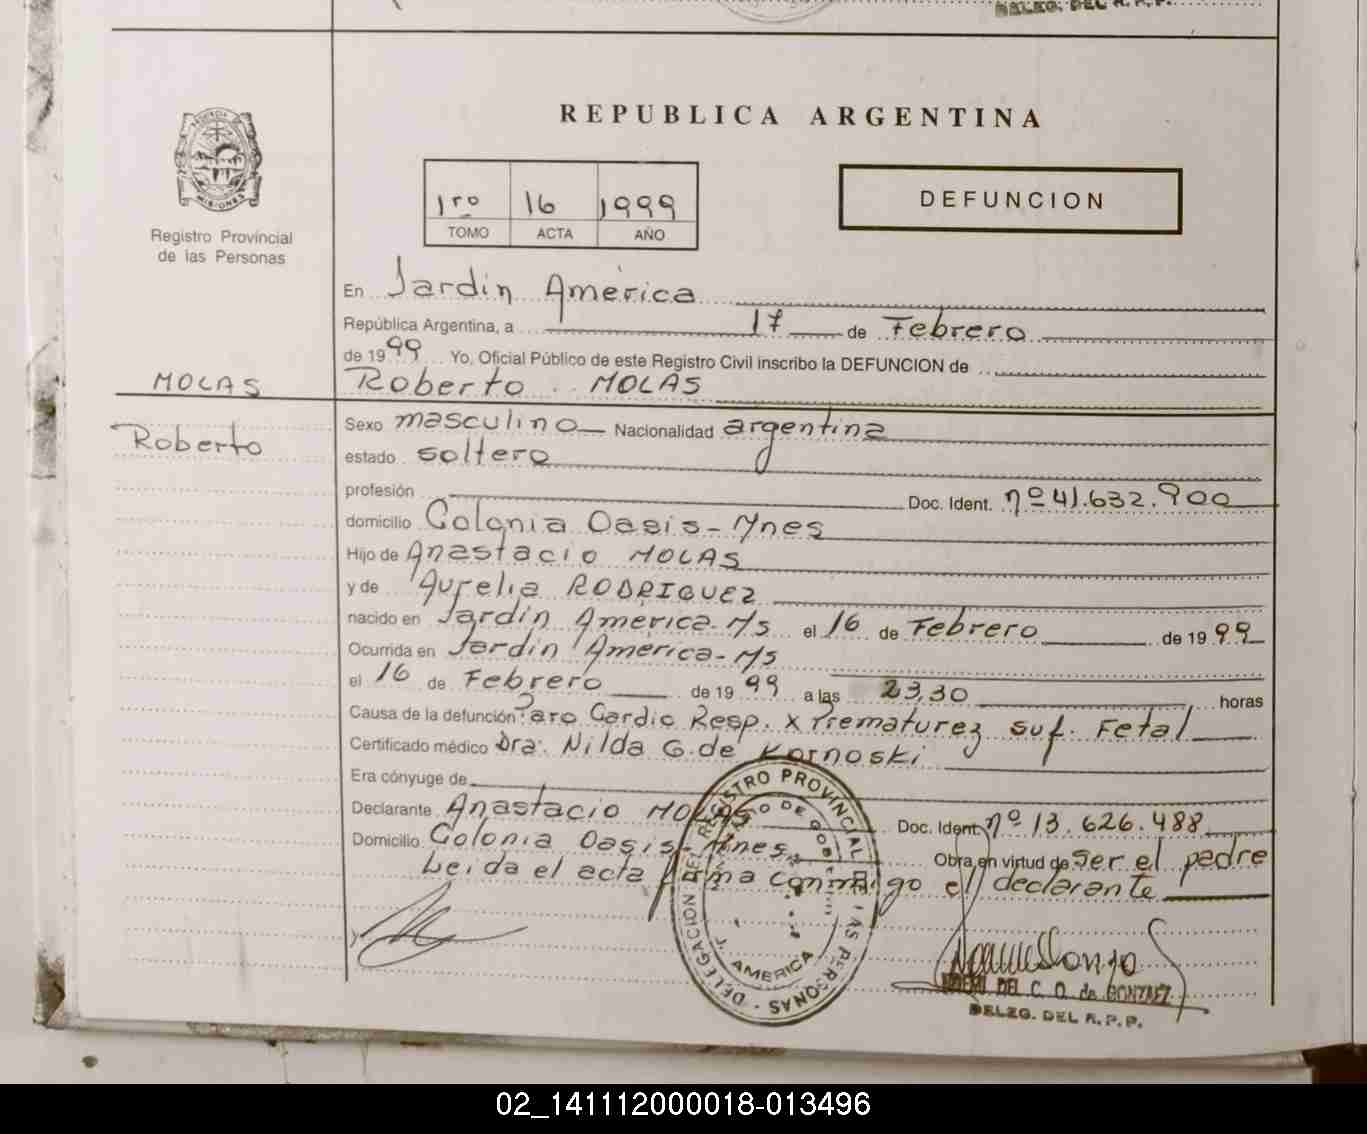 DELEG. DEL R.P.P.
REPUBLICA ARGENTINA
PROVINCIA DE
MISIONES
Registro Provincial
de las Personas
1ro 16 1999
TOMO ACTA AÑO
DEFUNCION
En Jardín América
República Argentina, a 17 de Febrero
de 1999 Yo, Oficial Público de este Registro Civil inscribo la DEFUNCION de
MOLAS Roberto MOLAS
Roberto
Sexo masculino Nacionalidad argentina
estado soltero
profesión Doc. Ident. nº 41.632.900
domicilio Colonia Oasis - Mnes
Hijo de Anastacio MOLAS
y de Aurelia RODRIGUEZ
nacido en Jardín América - Ms el 16 de Febrero de 1999
Ocurrida en Jardín América - Ms
el 16 de Febrero de 1999 a las 23,30 horas
Causa de la defunción Paro Cardio Resp. x Prematurez suf. Fetal
Certificado médico Dra. Nilda G. de Kornoski
Era cónyuge de
Declarante Anastacio MOLAS Doc. Ident. nº 13.626.488
Domicilio Colonia Oasis - Mnes Obra en virtud de ser el padre
Leída el acta firma conmigo el declarante
DELEGACION DEL REGISTRO PROVINCIAL DE LAS PERSONAS
J. AMERICA
DEL C. O. de GONZALEZ
DELEG. DEL R.P.P.
02_141112000018-013496